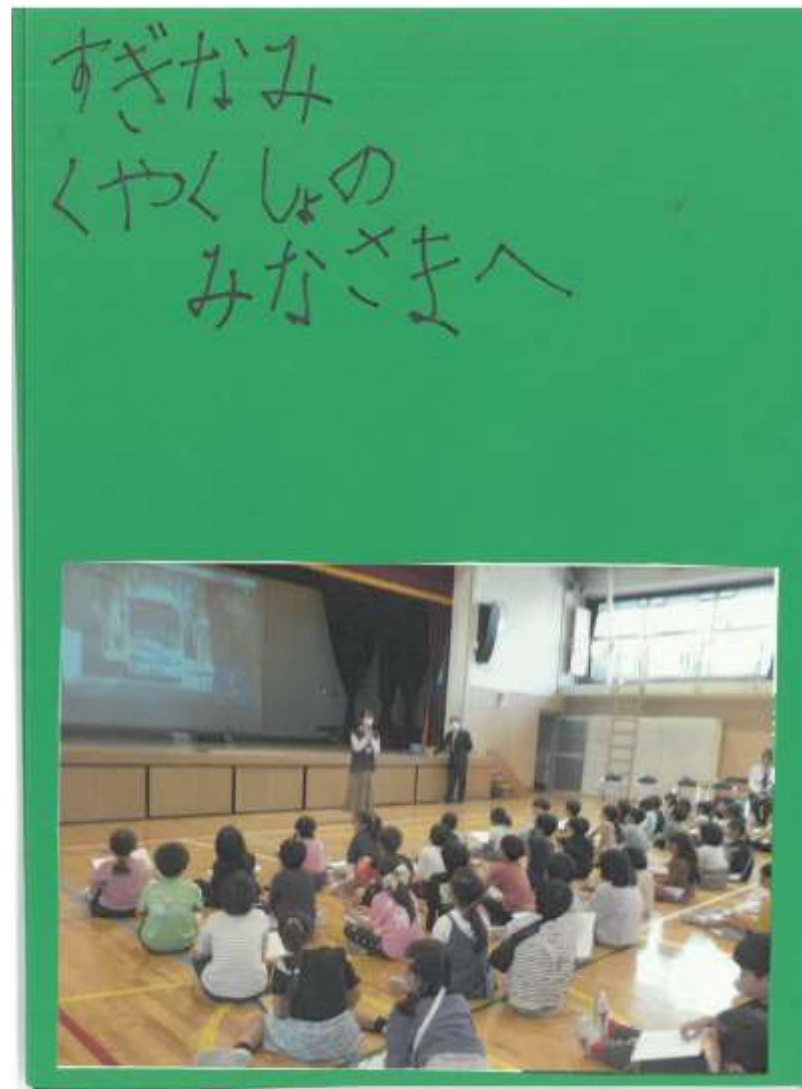 すぎなみ
くやくしょの
みなさまへ